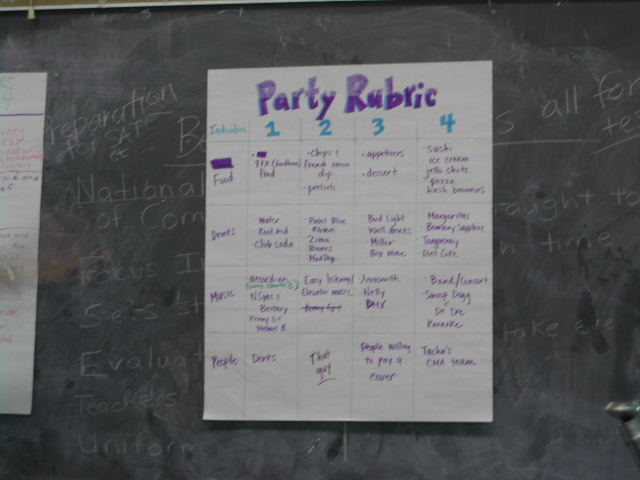 Party Rubric
Indicators 1 2 3 4
Food
TFA (Southern)
food
• Chips &
French onion
dip
• pretzels
• appetizers
• dessert
• Sushi
ice cream
jello shots
pizza
hash brownies
Drinks
Water
Kool Aid
Club soda
• Pabst Blue
Ribbon
Zima
Boones
Mad Dog
Bud Light
• Well drinks
• Miller
• Box wine
• Margaritas
• Bombay Sapphire
Tanqueray
• Diet Coke
Music
accordian
NSync &
Britney
Kenny G
Easy listening/
Elevator music
Kenny G
Aerosmith
Nelly
• DMX
• Band/Concert
• Snoop Dogg
&
Dr Dre
Karaoke
People
Dorks
That
guy!
People willing
to pay a
cover
Tacha's
CMA team
Preparation
for SAT
etc...
all for
National
of Com
Focus I
time
Set St
take
Evaluat
Teachers
Uniform